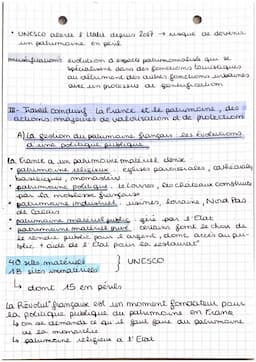 • UNESCO alerte l'Italie depuis 2017 → risque de devenir
un patrimoine en péril
évolution d'espaces patrimonialisés qui se
spécialisent dans des fonctions touristiques
au détriment des autres fonctions urbaines
avec un processus de gentrification
III- Travail conclusif : la France et le patrimoine, des
actions majeures de valorisation et de protection
A) La gestion du patrimoine français : les évolutions
d'une politique publique
La France a un patrimoine matériel dense
• patrimoine religieux : églises paroissiales, cathédrales,
basiliques, monastères
• patrimoine politique : le Louvre, les châteaux construits
par la monarchie française
• patrimoine industriel : usines, Lorraine, Nord Pas
de Calais
• patrimoine matériel public géré par l'Etat
• patrimoine matériel privé : certains font le choix de
le rendre public pour l'argent, donc accès au pu-
blic + aide de l'Etat pour la restaurat°
40 sites matériels
18 sites immatériels
UNESCO
↳ dont 15 en périls
La Révolut° française est un moment fondateur pour
la politique publique du patrimoine en France
↳ on se demande ce qu'il faut faire du patrimoine
de la monarchie
↳ patrimoine religieux à l'Etat